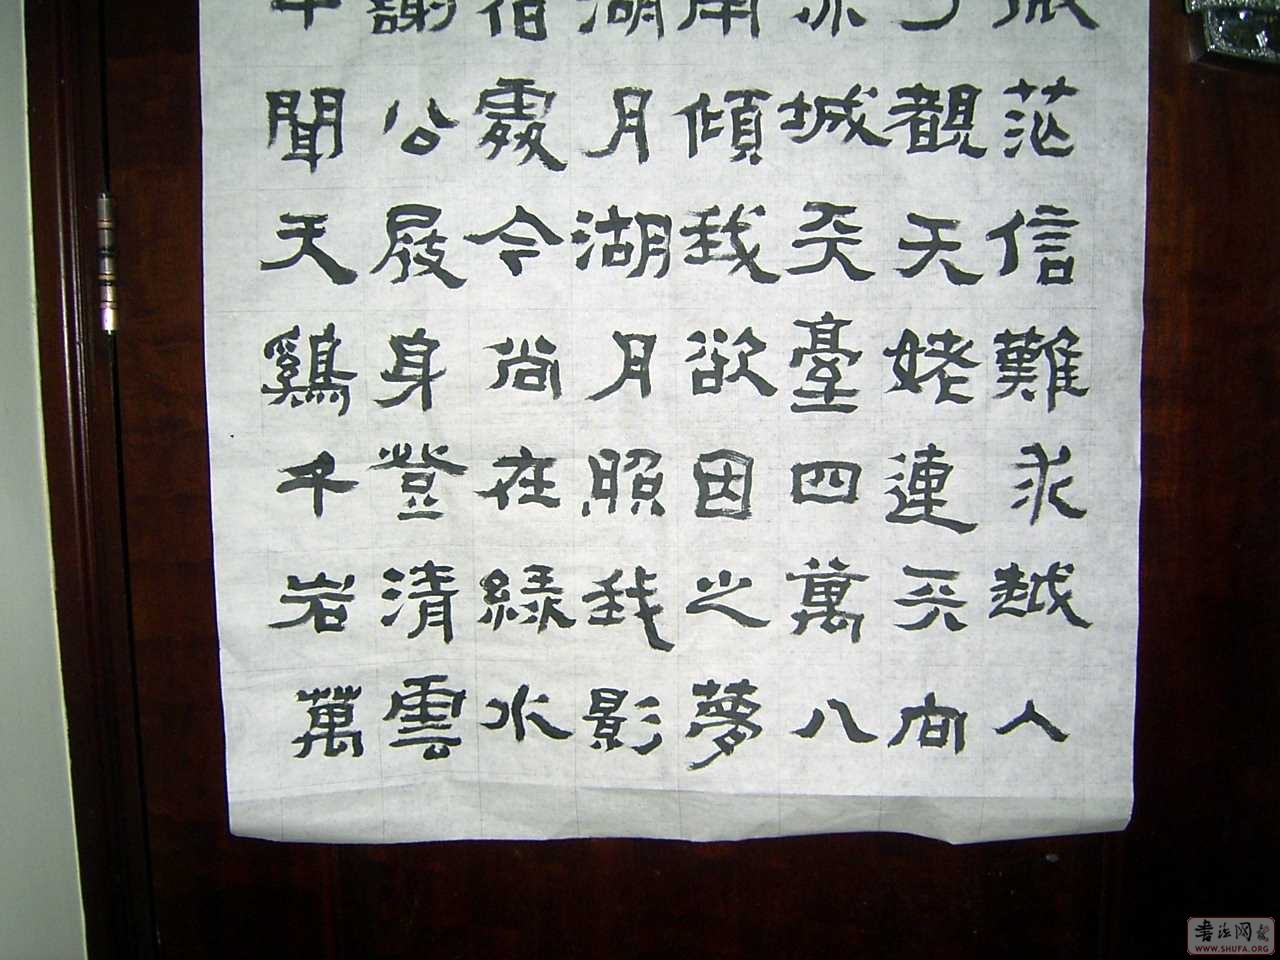 茫信難求越人
覩天姥連天向
赤城天臺四萬八
南傾我欲因之夢
湖月湖月照我影
宿處今尚在綠水
謝公屐身登清雲
聞天鷄千岩萬
書法网
WWW.SHUFA.ORG